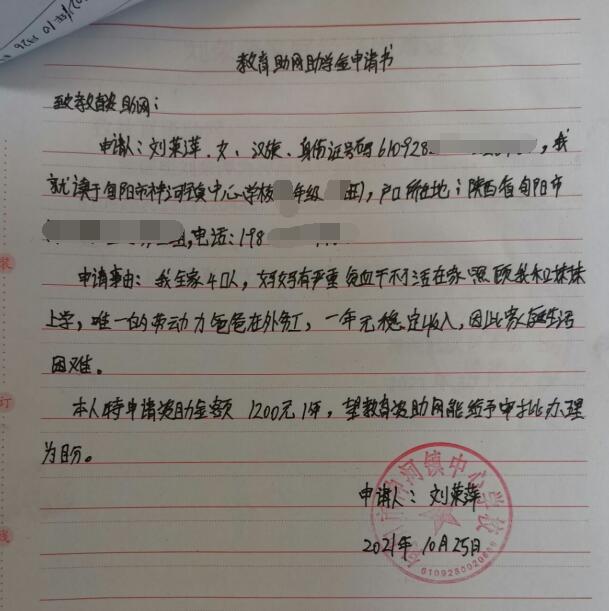 教育助网助学金申请书
致教育资助网：
申请人：刘荣萍、女、汉族、身份证号码610928 ，我
就读于旬阳市神河镇中心学校 年级 班），户口所在地：陕西省旬阳市
组，电话：198
申请事由：我全家4口人，妈妈有严重贫血干不了活在家照顾我和妹妹
上学，唯一的劳动力爸爸在外务工，一年无稳定收入，因此家庭生活
困难。
本人特申请资助金额 1200元1年，望教育资助网能给予审批办理
为盼。
申请人：刘荣萍
2021年10月25日
河镇中心学校
装
订
线